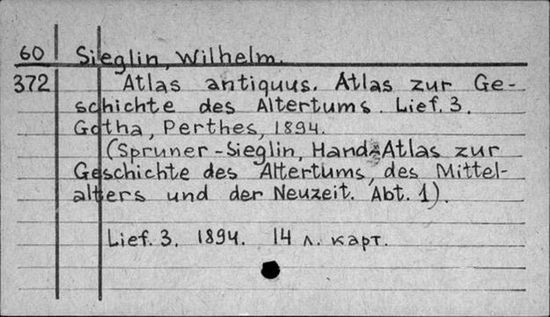 60 Sieglin, Wilhelm.
372 Atlas antiquus. Atlas zur Ge-
schichte des Altertums. Lief. 3.
Gotha, Perthes, 1894.
(Spruner-Sieglin, Hand-Atlas zur
Geschichte des Altertums, des Mittel-
alters und der Neuzeit. Abt. 1).
Lief. 3. 1894. 14 л. карт.